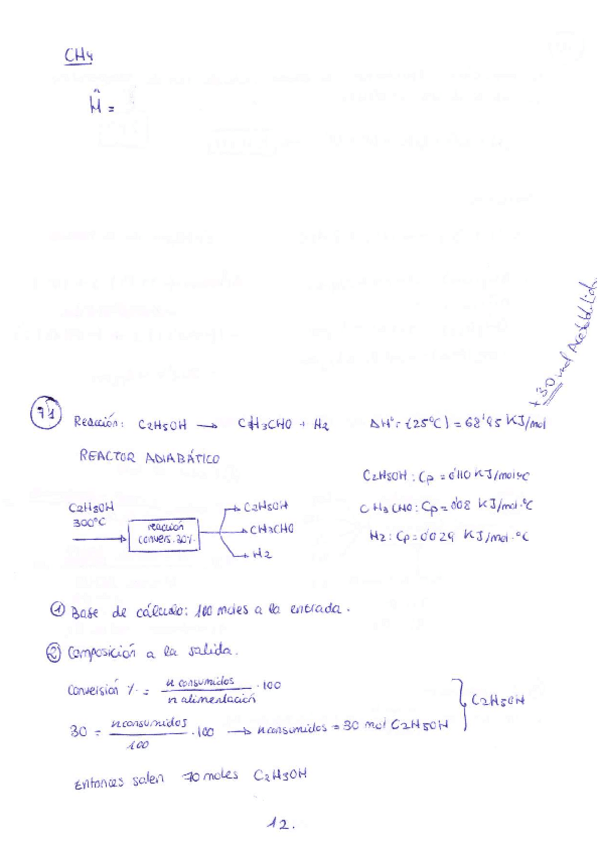 CH4
Ĥ =
+ 30 mol Acetaldehido.
71 Reacción: C2H5OH → CH3CHO + H2 ΔH°r (25°C) = 68'95 KJ/mol
REACTOR ADIABÁTICO
C2H5OH : Cp = 0'110 KJ/mol·ºC
CH3CHO: Cp = 0'08 KJ/mol·ºC
H2: Cp = 0'029 KJ/mol·ºC
C2H5OH
300°C
reacción
convers. 30%
C2H5OH
CH3CHO
H2
① Base de cálculo: 100 moles a la entrada.
② Composición a la salida.
Conversión % = n consumidos / n alimentación · 100
30 = n consumidos / 100 · 100 → n consumidos = 30 mol C2H5OH
C2H5OH
Entonces salen 70 moles C2H5OH
12.